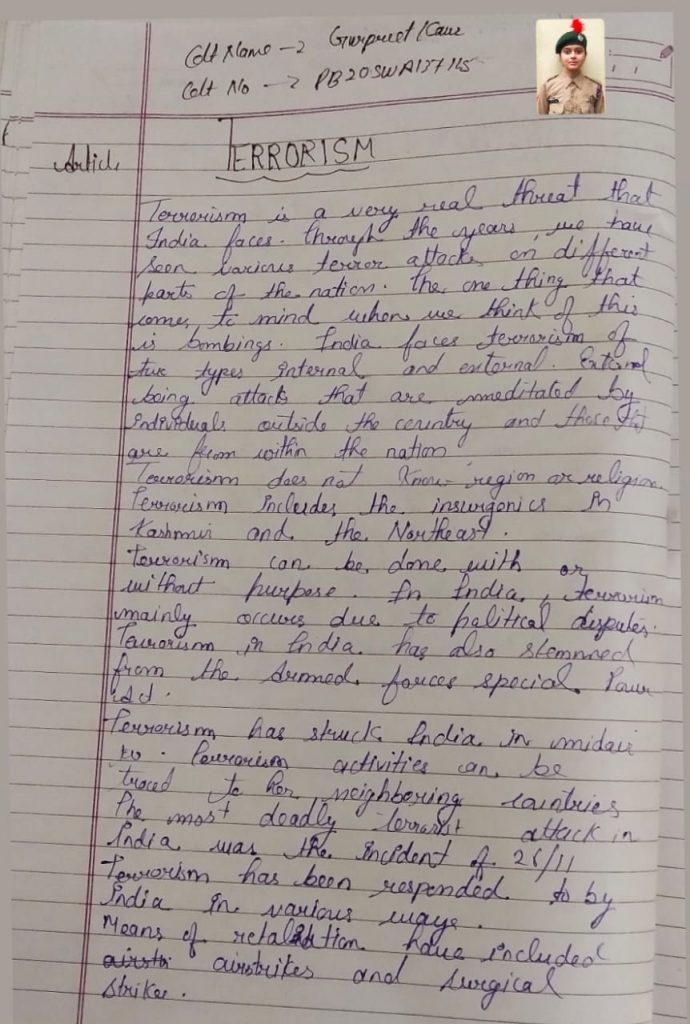 Cdt Name → Gurpreet Kaur
Cdt No → PB20SWA137115
Article
TERRORISM
Terrorism is a very real threat that
India faces. Through the years, we have
seen various terror attacks on different
parts of the nation. The one thing that
comes to mind when we think of this
is bombings. India faces terrorism of
two types internal and external. External
being attacks that are meditated by
individuals outside the country and those that
are from within the nation
Terrorism does not know region or religion.
Terrorism includes the insurgenics in
Kashmir and the Northeast.
Terrorism can be done with or
without purpose. In India, terrorism
mainly occurs due to political disputes.
Terrorism in India has also stemmed
from the Armed forces special Power
Act.
Terrorism has struck India in midair
to. Terrorism activities can be
traced to her neighboring countries
The most deadly terrorist attack in
India was the incident of 26/11
Terrorism has been responded to by
India in various ways.
Means of retaliation have included
airstrikes and surgical
strike.